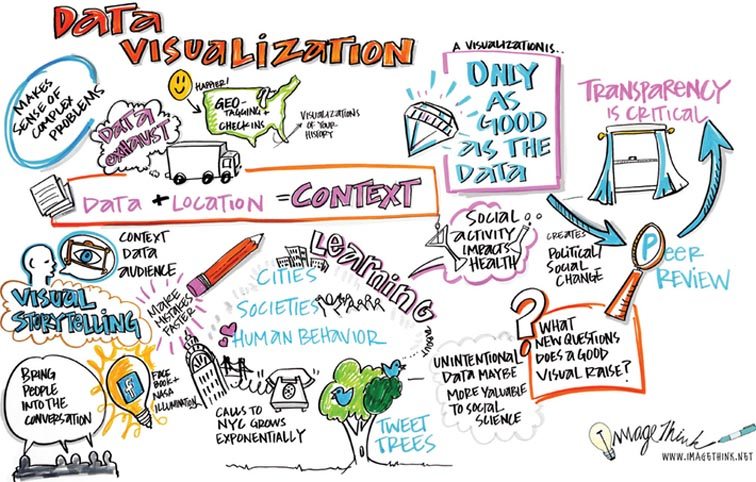 DATA
VISUALIZATION
MAKES
SENSE OF
COMPLEX
PROBLEMS
DATA
EXHAUST
HAPPIER!
GEO-
TAGGING +
CHECK INS
VISUALIZATIONS
OF YOUR
HISTORY
A VISUALIZATION IS...
ONLY
AS
GOOD
AS THE
DATA
TRANSPARENCY
IS CRITICAL
DATA + LOCATION = CONTEXT
CONTEXT
DATA
AUDIENCE
VISUAL
STORYTELLING
MAKE
MISTAKES
FASTER
LEARNING
ABOUT
CITIES
SOCIETIES
HUMAN BEHAVIOR
SOCIAL
ACTIVITY
IMPACTS
HEALTH
CREATES
POLITICAL/
SOCIAL
CHANGE
PEER
REVIEW
WHAT
NEW QUESTIONS
DOES A GOOD
VISUAL RAISE?
?
BRING
PEOPLE
INTO THE
CONVERSATION
f
FACE
BOOK +
NASA
ILLUMINATION
CALLS TO
NYC GROWS
EXPONENTIALLY
TWEET
TREES
UNINTENTIONAL
DATA MAYBE
MORE VALUABLE
TO SOCIAL
SCIENCE
ImageThink
WWW.IMAGETHINK.NET